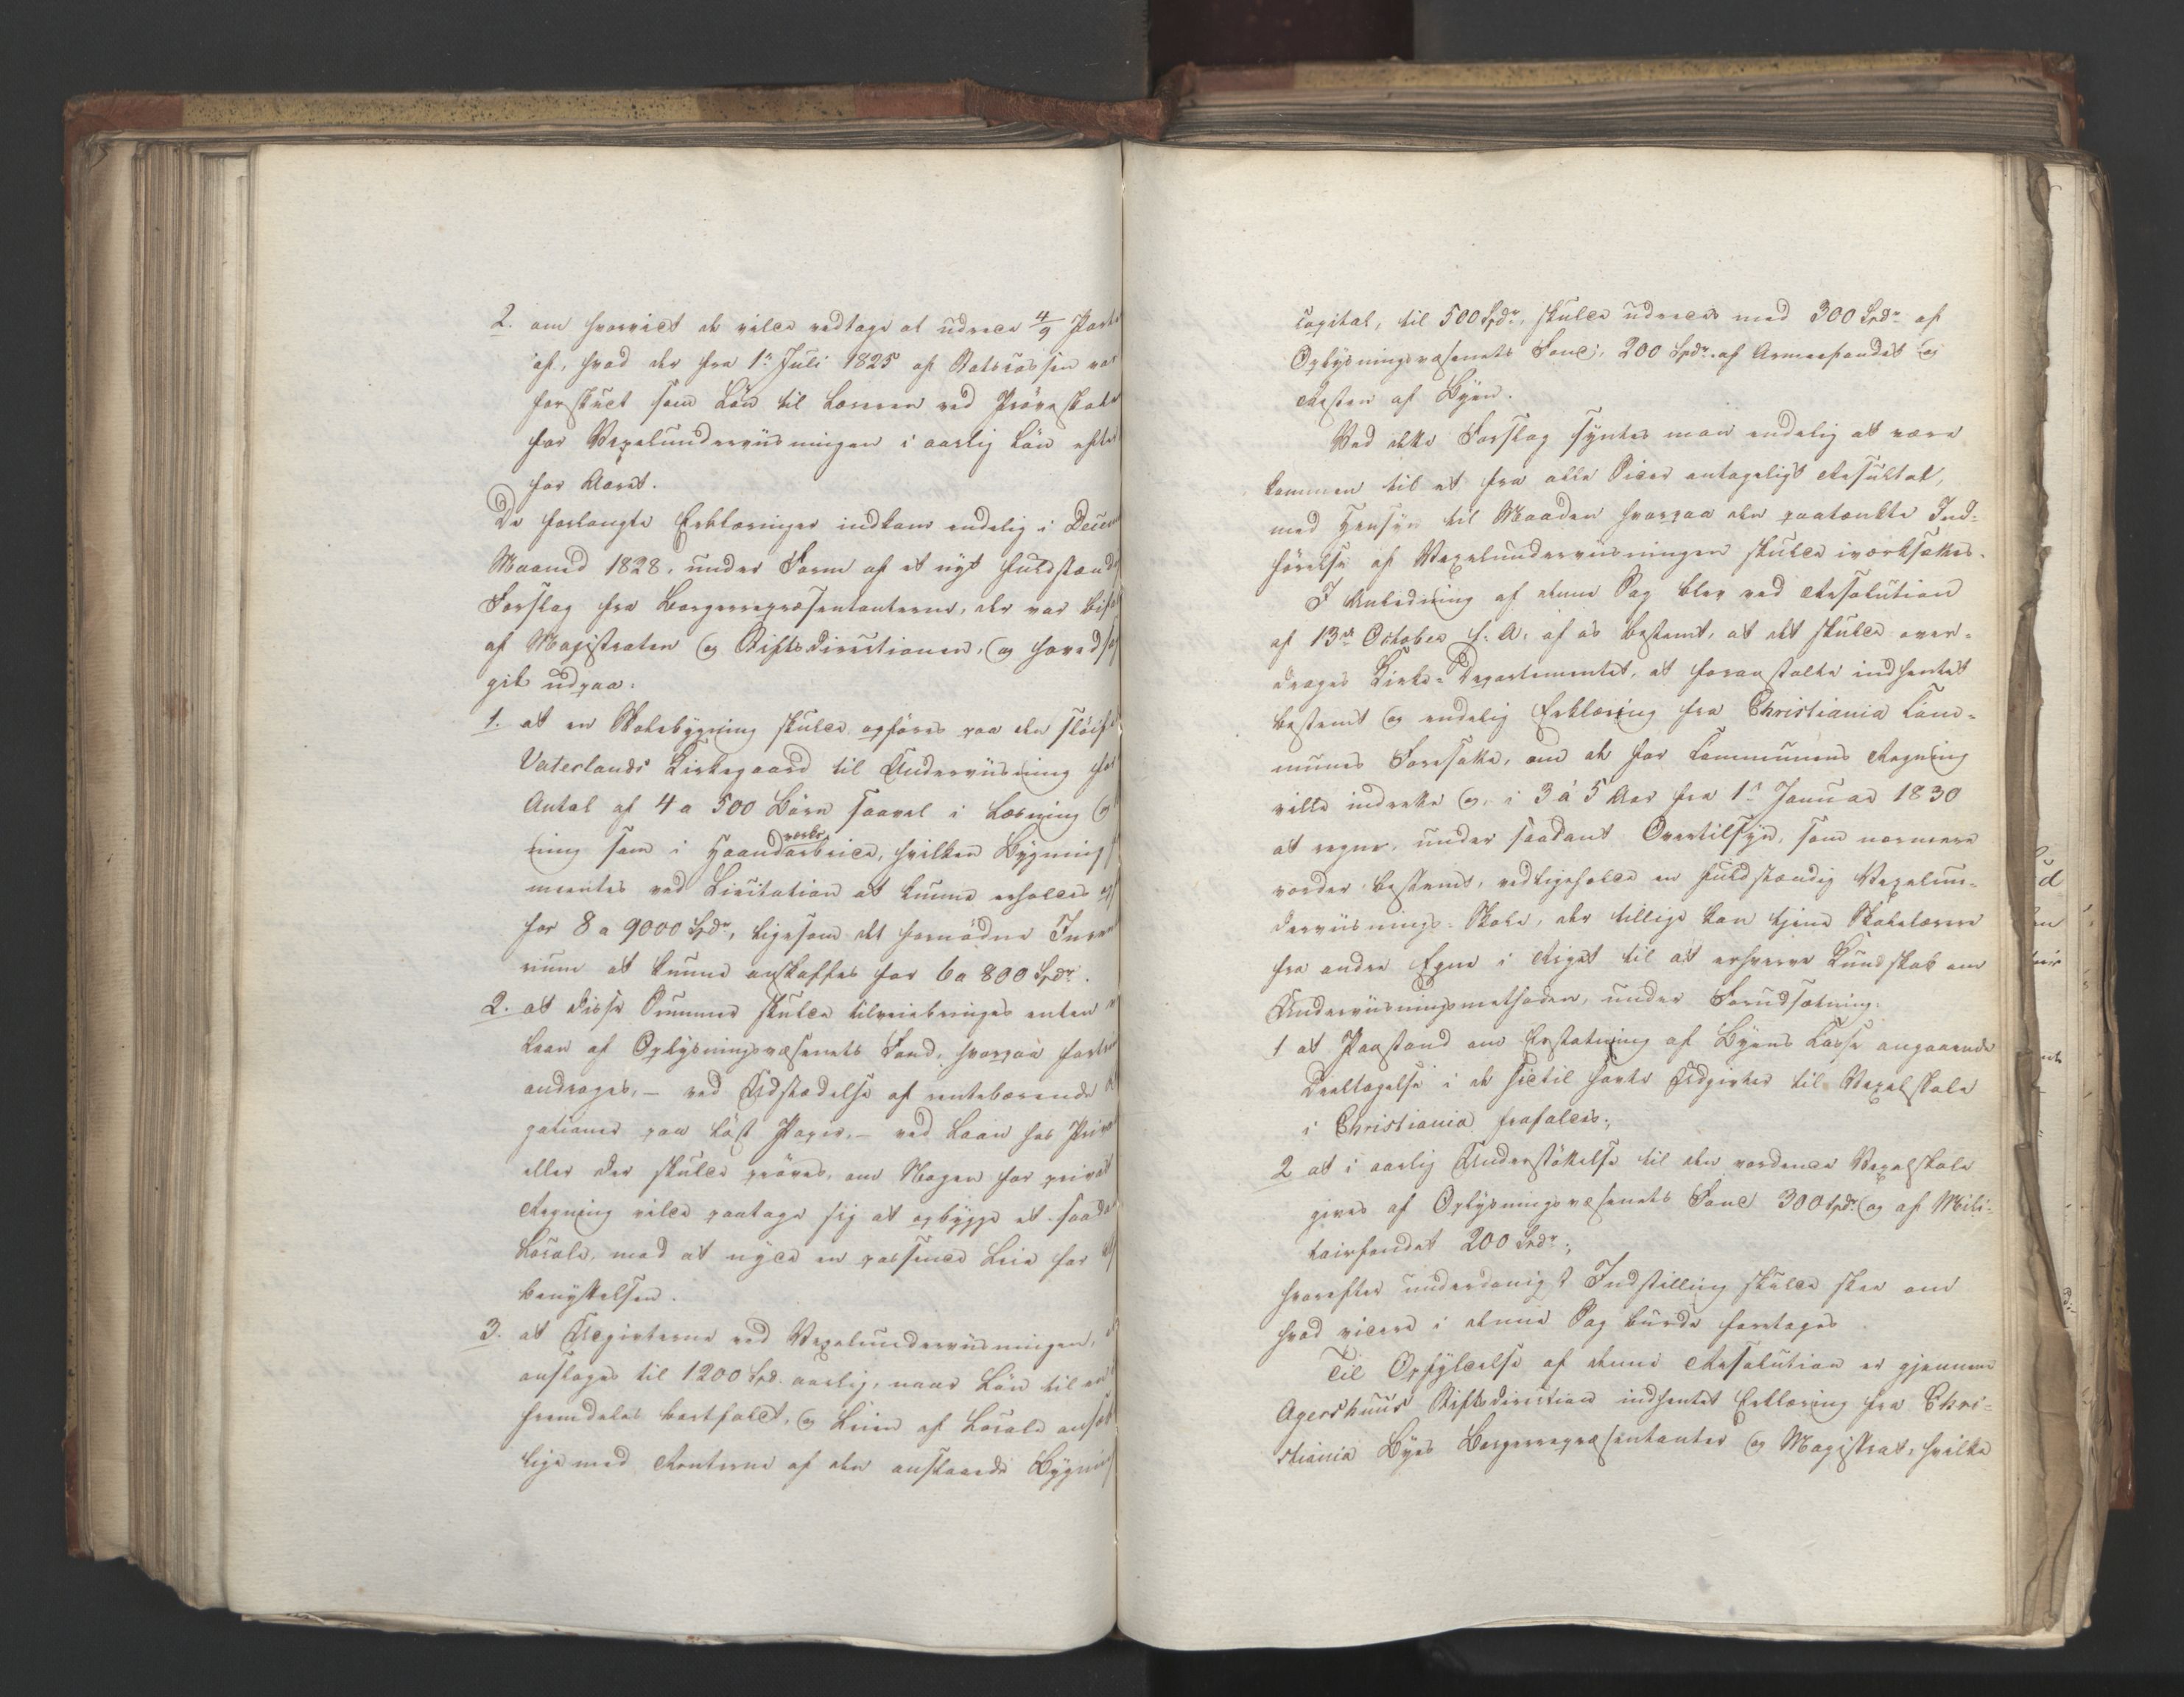 2. om hvorvidt de vilde vedtage at udrede 4/9 Parte
af, hvad der fra 1ste Juli 1825 af Statscassen var
forskudt som Løn til Læreren ved Prøveskolen
for Vexelunderviisningen i aarlig Løn efter
for Aaret.
De forlangte Erklæringer indkom endelig i Decem
Maaned 1828, under Form af et nyt fuldstændig
Forslag fra Borgerrepræsentanterne, der var bifal
af Magistraten og Stiftsdirectionen, og hovedsag
gik udpaa:
1. at en Skolebygning skulde opføres paa den sløife
Vaterlands Kirkegaard til Underviisning for
Antal af 4 a 500 Børn saavel i Læsning og
ning som i Haandarbeide, hvilken Bygning
meentes ved Licitation at kunne erholdes
for 8 a 9000 Spdr, ligesom det fornødne Inven
rium at kunne anskaffes for 6 a 800 Spdr.
2. at disse Summer skulde tilveiebringes enten
Laan af Oplysningsvæsenets Fond, hvorpaa
andrages, – ved Udstædelse af rentebærende
gationer paa løst Papir, – ved Laan hos Priva
eller der skulde prøves, om Nogen for privat
Regning vilde paatage sig at opbygge et saada
Locale, mod at nyde en passende Leie for
benyttelsen.
3. at Udgivterne ved Vexelunderviisningen,
anslages til 1200 Spd. aarlig, naar Løn til
fremdeles bortfaldt, og Leien af Locale ansæt
lige med Renterne af den anslaaede Bygning
capital, til 500 Spdr, skulde udredes med 300 Spdr af
Oplysningsvæsenets Fond, 200 Spdr. af Armeefondet og
Resten af Byen.
Ved dette Forslag syntes man endelig at være
kommen til et fra alle Sider antageligt Resultat,
med Hensyn til Maaden hvorpaa den paatænkte Ind-
førelse af Vexelunderviisningen skulde iværksættes.
I Anledning af denne Sag blev ved Resolution
af 13de October f. A. af os bestemt, at det skulde over-
drages Kirke-Departementet, at foranstalte indhentet
bestemt og endelig Erklæring fra Christiania Com-
munes Foresatte, om de for Communens Regning
ville indrette og, i 3 à 5 Aar fra 1ste Januar 1830
at regne, under saadant Overtilsyn, som nærmere
vorder bestemt, vedligeholde en fuldstændig Vexelun-
derviisnings-Skole, der tillige kan tjene Skolelærere
fra andre Egne i Riget til at erhverve Kundskab om
Underviisningsmethoden, under Forudsætning:
1 at Paastand om Erstatning af Byens Casse angaaende
Deeltagelse i de hidtil havte Udgivter til Vexelskole
i Christiania frafaldes;
2 at i aarlig Understøttelse til den vordende Vexelskole
gives af Oplysningsvæsenets Fond 300 Spdr. og af Mili-
tairfondet 200 Spdr.;
hvorefter underdanigst Indstilling skulde skee om
hvad videre i denne Sag burde foretages.
Til Opfyldelse af denne Resolution er gjennem
Agershuus Stiftsdirection indhentet Erklæring fra Chri-
stiania Byes Borgerrepræsentanter og Magistrat, hvilke